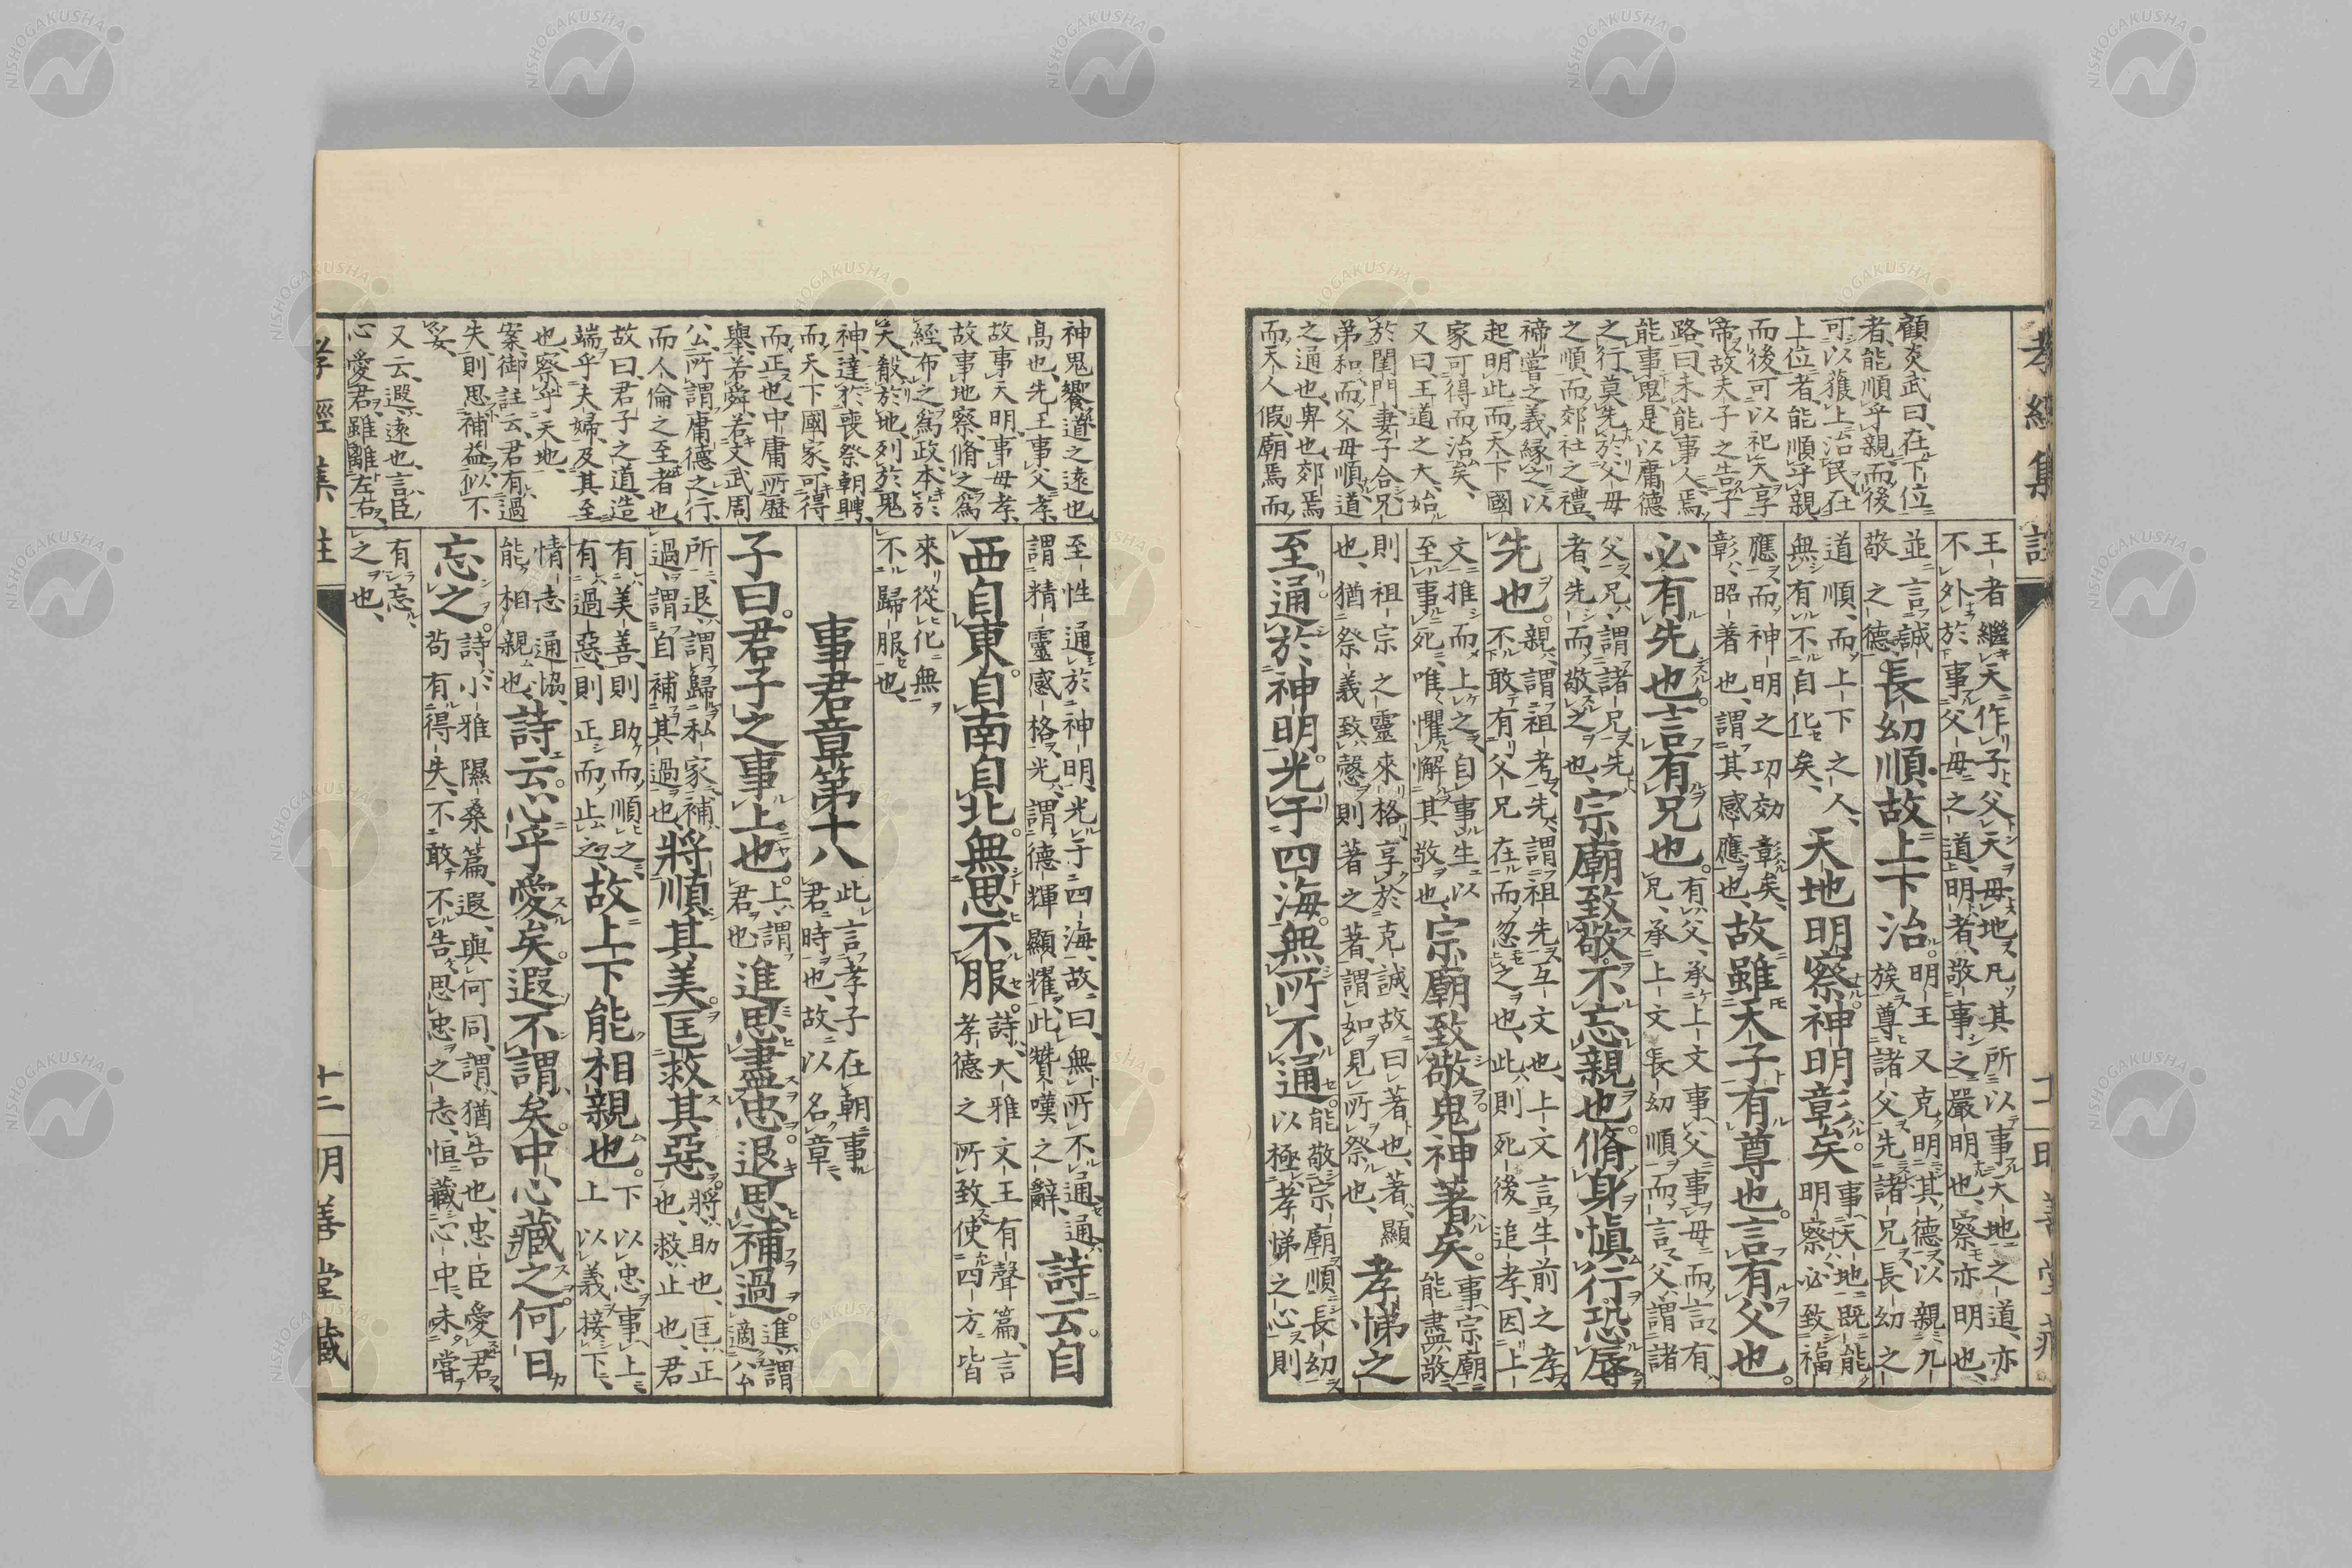 孝經集註 十二 明善堂藏
顧炎武曰、在下位
者、能順乎親、而後
可以獲上治民、在
上位者、能順乎親、
而後可以祀天享
帝、故夫子之告子
路、曰未能事人、焉
能事鬼、是以庸德
之行、莫先於父母
之順、而郊社之禮、
禘嘗之義、緣之以
起、明此而天下國
家可得而治矣、
又曰、王道之大、始
於閨門、妻子合、兄
弟和、而父母順、道
之邇也、卑也、郊焉
而天人假、廟焉而
王者繼天作子、父天母地、凡其所以事天地之道、亦
不外於事父母之道、明者、敬事之嚴明也、察亦明也、
並言誠
敬之德
長幼順。故上下治。
明王又克明其德、以親九
族、尊諸父、先諸兄、長幼之
道順、而上下之人、
無有不自化矣、
天地明察。神明彰矣。
事天地、既能
明察、必致福
應、而神明之功効彰矣、
彰、昭著也、謂其感應也、
故雖天子有尊也。言有父也。
必有先也。言有兄也。
有父、承上文事父事母而言、有
兄、承上文長幼順而言、父、謂諸
父、兄、謂諸兄、先
者、先而敬之也、
宗廟致敬。不忘親也。脩身愼行。恐辱
先也。
親、謂祖考、先、謂祖先、互文也、上文言生前之孝、
不敢有父兄在而忽之也、此則死後追孝、因上
文推而上之、自事生以
至事死、唯懼懈其敬也、
宗廟致敬。鬼神著矣。
事宗廟
能盡敬、
則祖宗之靈來格、享於克誠、故曰著也、著、顯
也、猶祭義致愨則著之著、謂如見所祭也、
孝悌之
至通於神明。光于四海。無所不通。
能敬宗廟、順長幼、
以極孝悌之心、則
神鬼饗、道之遠也
高也、先王事父孝、
故事天明、事母孝、
故事地察、脩之爲
經、布之爲政、本於
天、殽於地、列於鬼
神、達於喪祭朝聘、
而天下國家、可得
而正也、中庸所歷
舉、若舜、若文武周
公、所謂庸德之行、
而人倫之至者也、
故曰、君子之道、造
端乎夫婦、及其至
也、察乎天地、
案、御註云、君有過
失、則思補益、似不
妥、
又云、遐、遠也、言臣
心愛君、雖離左右、
至性通於神明、光于四海、故曰、無所不通、通、
謂精靈感格、光、謂德輝顯耀、此贊嘆之辭、
詩云。自
西自東。自南自北。無思不服。
詩、大雅文王有聲篇、言
孝德之所致、使四方皆
來從化、無
不歸服也、
事君章第十八
此言孝子在朝事
君時也、故以名章、
子曰。君子之事上也。
上、謂
君也
進思盡忠。退思補過。
進、謂
適公
所、退、謂歸私家、補
過、謂自補其過也、
將順其美。匡救其惡。
將、助也、匡、正
也、救、止也、君
有美善、則助而順之、
有過惡、則正而止之、
故上下能相親也。
下以忠事上、
上以義接下、
情志通協、
能相親也、
詩云。心乎愛矣。遐不謂矣。中心藏之。何日
忘之。
詩、小雅隰桑篇、遐、與何同、謂、猶告也、忠臣愛君、
苟有得失、不敢不告、思忠之志、恒藏心中、未嘗
有忘
之也、
孝經集註 十二 明善堂藏